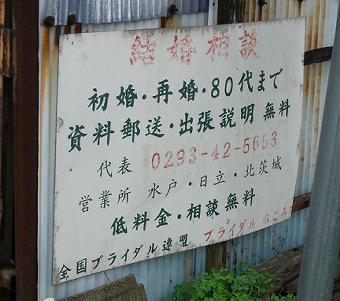 結婚相談
初婚・再婚・80代まで
資料郵送・出張説明 無料
代表 0293-42-5653
営業所 水戸・日立・北茨城
低料金・相談無料
全国ブライダル連盟 ブライダルなごみ